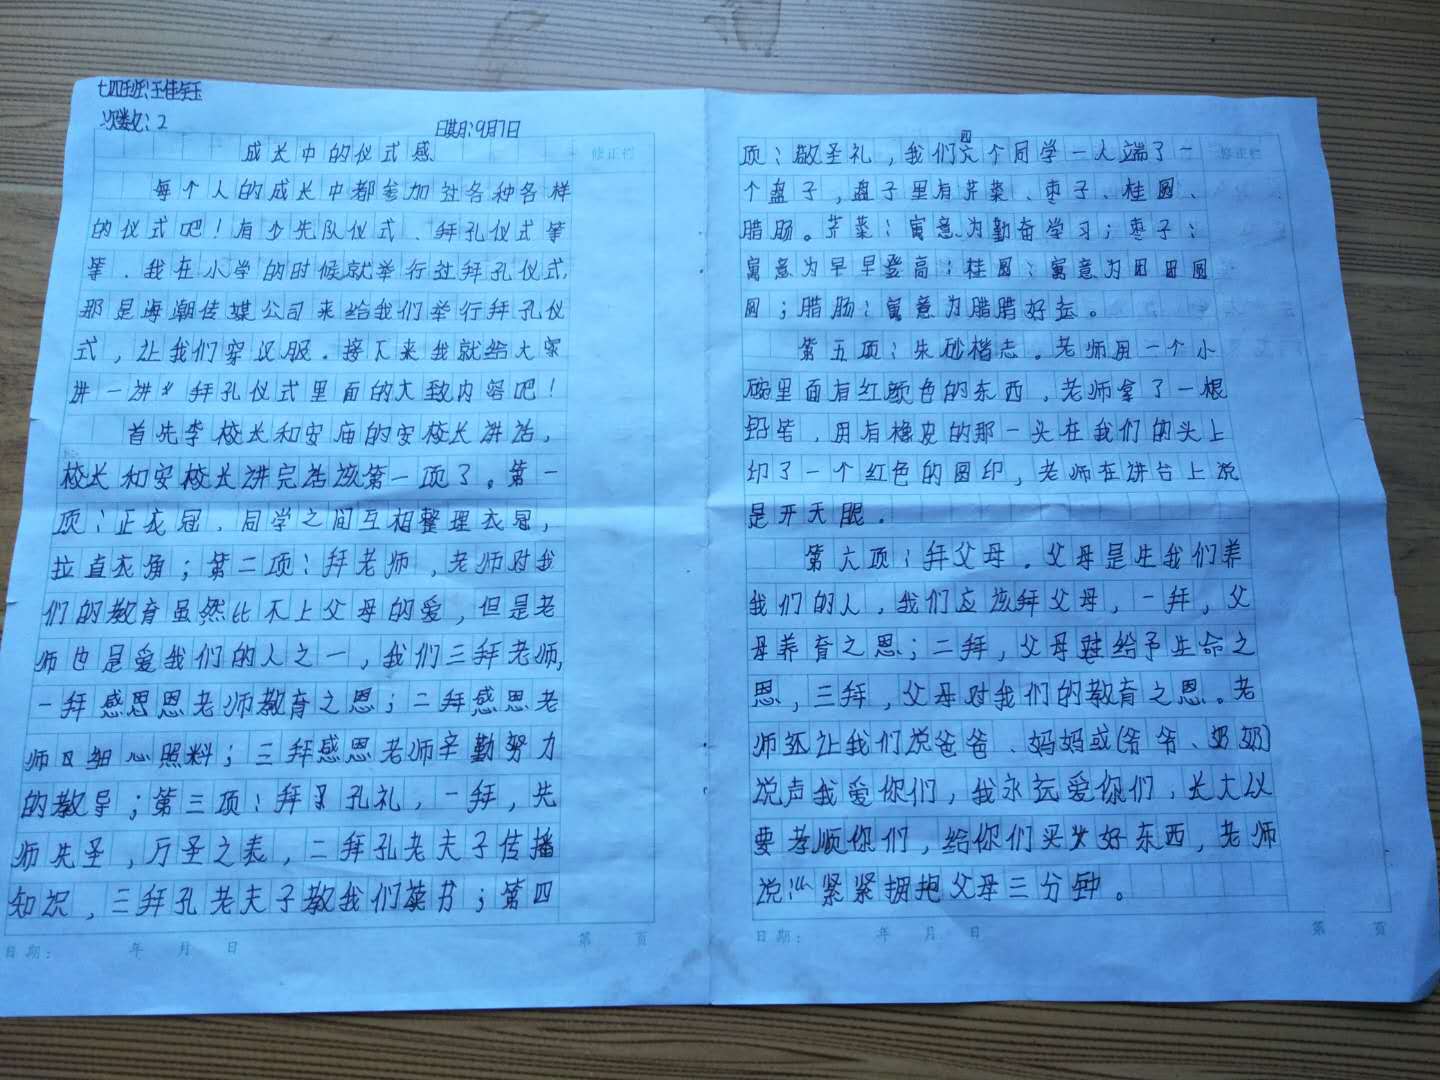 七四班:王佳钰
次数:2
日期:9月7日
成长中的仪式感
修正栏
每个人的成长中都参加过各种各样
的仪式吧!有少先队仪式、拜孔仪式等
等.我在小学的时候就举行过拜孔仪式,
那是海潮传媒公司来给我们举行拜孔仪
式,让我们穿汉服.接下来我就给大家
讲一讲拜孔仪式里面的大致内容吧!
首先李校长和安庙的安校长讲话,
校长和安校长讲完话该第一项了。第一
项:正衣冠.同学之间互相整理衣冠,
拉直衣角;第二项:拜老师,老师对我
们的教育虽然比不上父母的爱,但是老
师也是爱我们的人之一,我们三拜老师,
一拜感思恩老师教育之恩;二拜感恩老
师细心照料;三拜感恩老师辛勤努力
的教导;第三项:拜孔礼,一拜,先
师先圣,万圣之表,二拜孔老夫子传播
知识,三拜孔老夫子教我们读书;第四
日期: 年 月 日
第 页
项:敬圣礼,我们四个同学一人端了一
修正栏
个盘子,盘子里有芹菜、枣子、桂圆、
腊肠。芹菜:寓意为勤奋学习;枣子:
寓意为早早登高;桂圆:寓意为团团圆
圆;腊肠:寓意为腊腊好运。
第五项:朱砂楷志。老师用一个小
碗里面有红颜色的东西,老师拿了一根
铅笔,用有橡皮的那一头在我们的头上
印了一个红色的圆印,老师在讲台上说
是开天眼.
第六项:拜父母.父母是生我们养
我们的人,我们应该拜父母,一拜,父
母养育之恩;二拜,父母给予生命之
恩,三拜,父母对我们的教育之恩。老
师还让我们说爸爸、妈妈或(爷爷、奶奶)
说声我爱你们,我永远爱你们,长大以
要孝顺你们,给你们买好东西,老师
说:“紧紧拥抱父母三分钟。
日期: 年 月 日
第 页